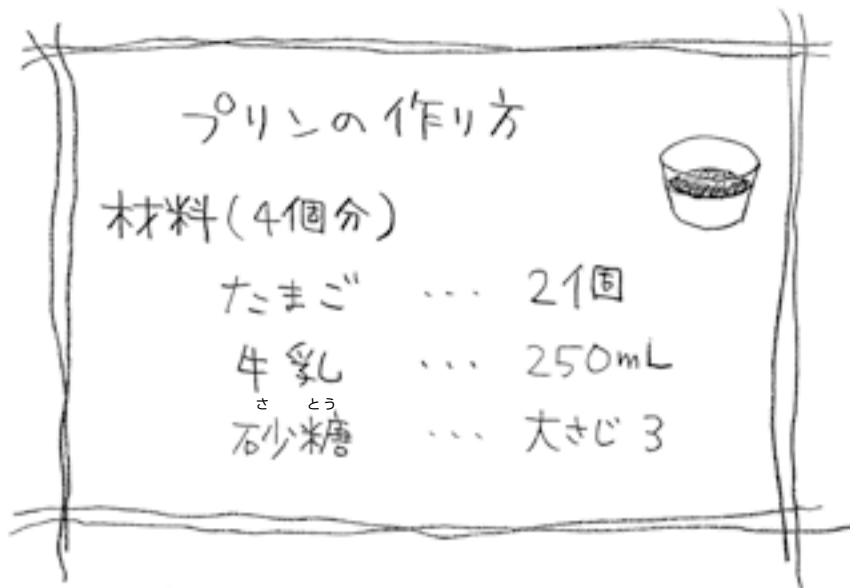 プリンの作り方
材料(4個分)
たまご ... 2個
牛乳 ... 250mL
さ とう
砂糖 ... 大さじ 3